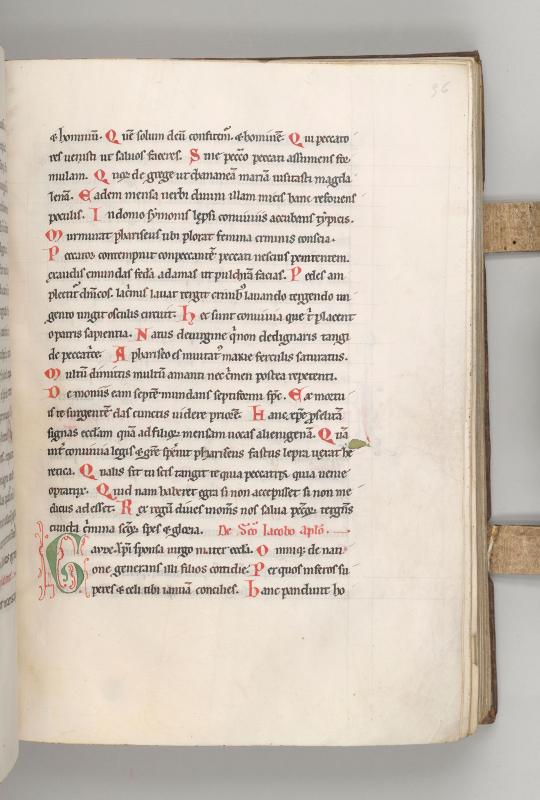 36
& hominū. Quē solum deū confitem̄. & hominē. Qui peccato
res uenisti ut saluos faceres. Sine pecc̄o peccati assumens for
mulam. Quiq; de grege ut chananeā mariā uisitasti magda
lenā. Eadem mensa uerbi diuini illam micis hanc refouens
poculis. In domo symonis lep̄si conuiuiis accubans typicis.
Murmurat phariseus ubi plorat femina criminis conscia.
Peccator contempnit conpeccantē peccati nescius penitentem.
exaudis emundas fedā adamas ut pulchrā facias. Pedes am
plectit̄ dn̄icos. lac̄mis lauat tergit crinib; lauando tergendo un
gento ungit osculis circuit. Hec sunt conuiuia que t̄ placent
o patris sapientia. Natus de uirgine q̄ non dedignaris tangi
de peccat̄ce. A phariseo es inuitat; marie ferculis saturatus.
Multū dimittis multū amanti nec c̄men postea repetenti.
Demoniis eam septē mundans septiformi sp̄c. Ex mortu
is te surgentē das cunctis uidere priorē. Hanc xp̄e p̄selitā
signas ecclam quā ad filioꝝ mensam uocas alienigenā. Quā
int̄ conuiuia legis & ḡre sp̄nit phariseus fastus lepra uexat he
retica. Qualis sit tu scis tangit te quia peccatrix quia uenie
optatrix. Quid nam haberet egra si non accepisset si non me
dicus adesset. Rex regū diues in om̄s nos salua peccoꝝ tergēs
cuncta c̄mina sc̄oꝝ spes & gloria. De Sc̄o Iacobo ap̄lo.
Gaude xp̄i sponsa uirgo mater eccla. Omniq; de nati
one generans illi filios cotidie. Per quos inferos su
peros & celi tibi ianuā concilies. Hanc pandunt ho